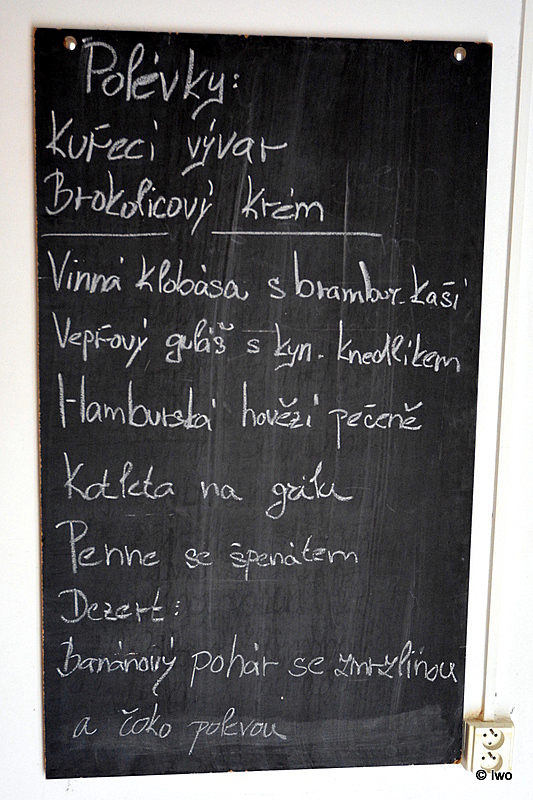 Polévky:
Kuřecí vývar
Brokolicový krém
Vinná klobása s brambur. kaší
Vepřový guláš s kyn. knedlíkem
Hamburská hovězí pečeně
Kotleta na grilu
Penne se špenátem
Dezert:
Banánový pohár se zmrzlinou
a čoko polevou
© Iwo